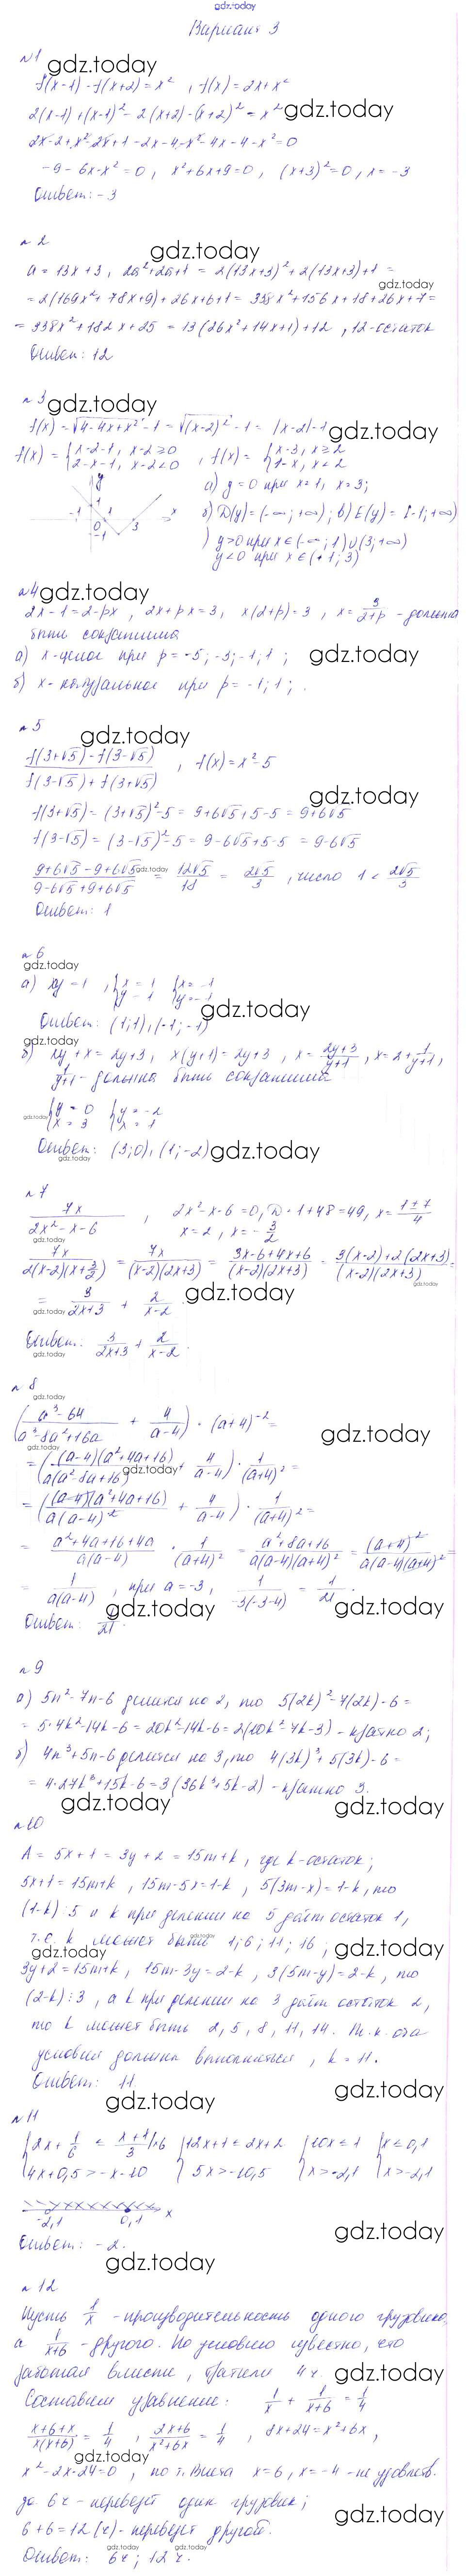 gdz.today
Вариант 3
№1 gdz.today
f(x-1) - f(x+2) = x², f(x) = 2x + x²
2(x-1) + (x-1)² - 2(x+2) - (x+2)² = x² gdz.today
2x - 2 + x² - 2x + 1 - 2x - 4 - x² - 4x - 4 - x² = 0
-9 - 6x - x² = 0, x² + 6x + 9 = 0, (x+3)² = 0, x = -3
Ответ: -3
№2
gdz.today
a = 13x + 3, 2a² + 2a + 1 = 2(13x+3)² + 2(13x+3) + 1 =
gdz.today
= 2(169x² + 78x + 9) + 26x + 6 + 1 = 338x² + 156x + 18 + 26x + 7 =
= 338x² + 182x + 25 = 13(26x² + 14x + 1) + 12, 12 - остаток
Ответ: 12
№3 gdz.today
f(x) = √(4-4x+x²) - 1 = √((x-2)²) - 1 = |x-2| - 1
gdz.today
f(x) = { x-2-1, x-2≥0 , f(x) = { x-3, x≥2
2-x-1, x-2<0 1-x, x<2
y
1
-1 0 1 3 x
-1
а) y = 0 при x = 1, x = 3;
б) D(y) = (-∞; +∞); в) E(y) = [-1; +∞)
) y>0 при x∈(-∞; 1)∪(3; +∞)
y<0 при x∈(1; 3)
№4 gdz.today
2x - 1 = 2 - px, 2x + px = 3, x(2+p) = 3, x = 3/(2+p) - должна
быть сократима
а) x - целое при p = -5; -3; -1; 1; gdz.today
б) x - натуральное при p = -1; 1; .
№5
gdz.today
(f(3+√5) - f(3-√5))/(f(3-√5) + f(3+√5)), f(x) = x² - 5
gdz.today
f(3+√5) = (3+√5)² - 5 = 9 + 6√5 + 5 - 5 = 9 + 6√5
f(3-√5) = (3-√5)² - 5 = 9 - 6√5 + 5 - 5 = 9 - 6√5
(9+6√5-9+6√5)/(9-6√5+9+6√5) gdz.today = 12√5/18 = 2√5/3, число 1 < 2√5/3
Ответ: 1
№6
gdz.today
а) xy = 1, { x = 1 { x = -1
y = 1 y = -1
gdz.today
Ответ: (1;1), (-1; -1)
б) xy + x = 2y + 3, x(y+1) = 2y + 3, x = (2y+3)/(y+1), x = 2 + 1/(y+1),
1/(y+1) - должна быть сократимой
gdz.today { y = 0 { y = -2
x = 3 x = 1
Ответ: (3; 0), (1; -2) gdz.today
gdz.today
№7
7x/(2x²-x-6), 2x² - x - 6 = 0, D = 1 + 48 = 49, x = (1±7)/4
x = 2, x = -3/2
gdz.today
7x/(2(x-2)(x+3/2)) = 7x/((x-2)(2x+3)) = (3x-6+4x+6)/((x-2)(2x+3)) = (3(x-2)+2(2x+3))/((x-2)(2x+3)) =
gdz.today
= 3/(2x+3) + 2/(x-2) . gdz.today
gdz.today
Ответ: 3/(2x+3) + 2/(x-2) .
gdz.today
№8
gdz.today
((a³-64)/(a³-8a²+16a) + 4/(a-4)) · (a+4)⁻² =
gdz.today
gdz.today
= ((a-4)(a²+4a+16)/(a(a²-8a+16)) + 4/(a-4)) · 1/(a+4)² =
gdz.today
= ((a-4)(a²+4a+16)/(a(a-4)²) + 4/(a-4)) · 1/(a+4)² =
= (a²+4a+16+4a)/(a(a-4)) · 1/(a+4)² = (a²+8a+16)/(a(a-4)(a+4)²) = (a+4)²/(a(a-4)(a+4)²) =
= 1/(a(a-4)), при a = -3, 1/(-3(-3-4)) = 1/21 .
gdz.today gdz.today
Ответ: 1/21 .
№9
а) 5n² - 7n - 6 делится на 2, то 5(2k)² - 7(2k) - 6 =
= 5·4k² - 14k - 6 = 20k² - 14k - 6 = 2(10k² - 7k - 3) - кратно 2;
б) 4n³ + 5n - 6 делится на 3, то 4(3k)³ + 5(3k) - 6 =
= 4·27k³ + 15k - 6 = 3(36k³ + 5k - 2) - кратно 3.
gdz.today gdz.today
№10
A = 5x + 1 = 3y + 2 = 15m + k, где k - остаток;
5x + 1 = 15m + k, 15m - 5x = 1 - k, 5(3m - x) = 1 - k, то
(1-k)⋮5 и k при делении на 5 даёт остаток 1,
gdz.today
т.е. k может быть 1; 6; 11; 16; gdz.today
gdz.today
3y + 2 = 15m + k, 15m - 3y = 2 - k, 3(5m - y) = 2 - k, то
(2-k)⋮3, а k при делении на 3 даёт остаток 2,
то k может быть 2, 5, 8, 11, 14. Т.к. оба
условия должны выполняться, k = 11.
Ответ: 11.
gdz.today
gdz.today
№11
{ 2x + 1/6 ≤ (x+1)/3 |·6 { 12x + 1 ≤ 2x + 2 { 10x ≤ 1 { x ≤ 0,1
4x + 0,5 > -x - 10 5x > -10,5 x > -2,1 x > -2,1
-2,1 0,1 x
gdz.today
Ответ: -2.
gdz.today
№12
Пусть 1/x - производительность одного грузовика,
а 1/(x+6) - другого. По условию известно, что
работая вместе, тратили 4 ч. gdz.today
Составим уравнение: 1/x + 1/(x+6) = 1/4
(x+6+x)/(x(x+6)) = 1/4, (2x+6)/(x²+6x) = 1/4, 8x + 24 = x² + 6x,
gdz.today
x² - 2x - 24 = 0, по т. Виета x = 6, x = -4 - не удовлетв.
за 6 ч - перевезёт один грузовик;
gdz.today
6 + 6 = 12 (ч) - перевезёт другой.
gdz.today gdz.today
Ответ: 6 ч; 12 ч.
gdz.today gdz.today